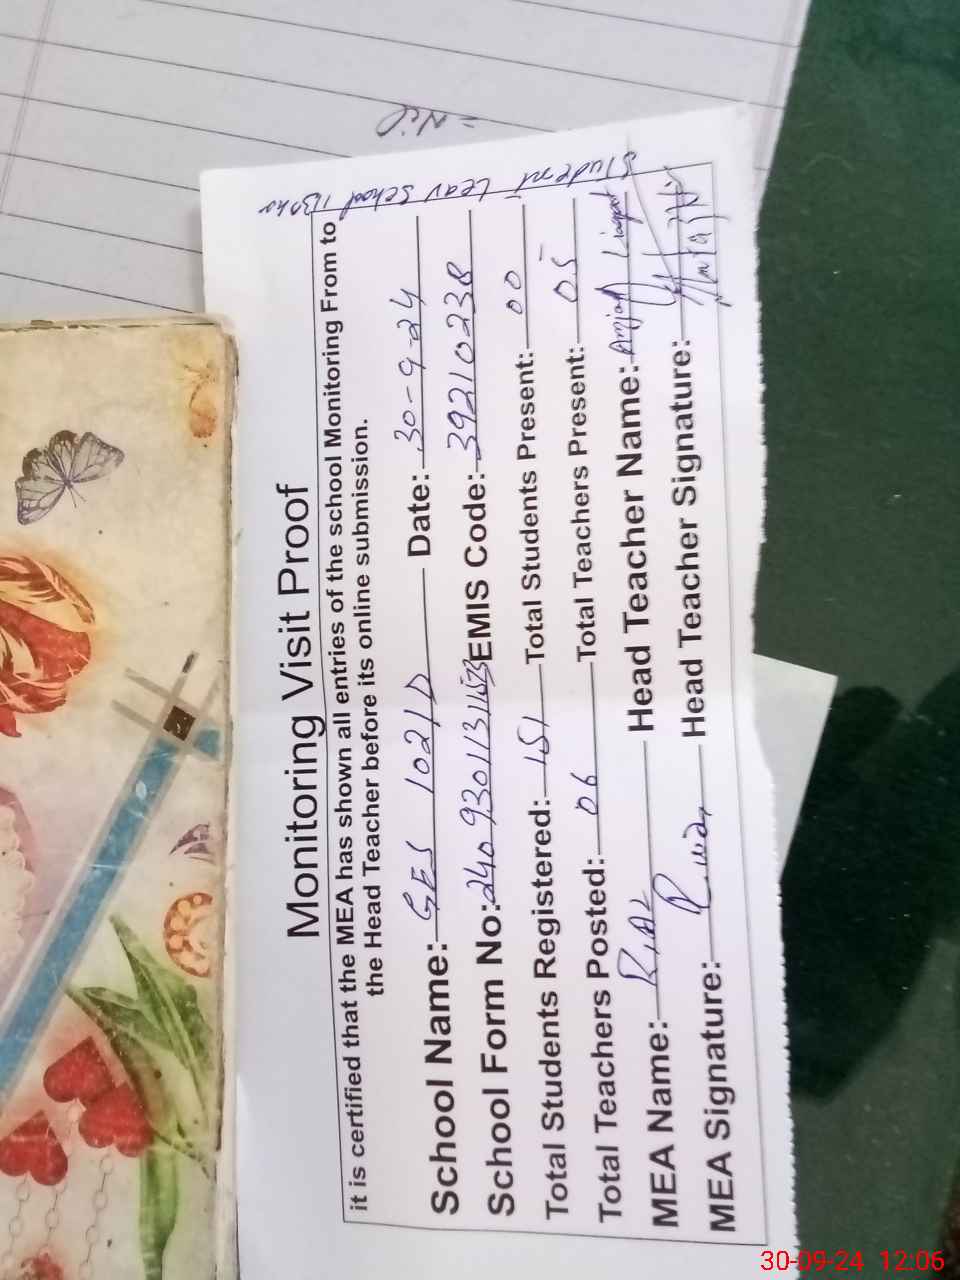 = Nil
Student Leav School
Monitoring Visit Proof
it is certified that the MEA has shown all entries of the school Monitoring From to
the Head Teacher before its online submission.
School Name: GES 102/D Date: 30-9-24
School Form No: EMIS Code: 39210238
Total Students Registered: 151 Total Students Present: 00
Total Teachers Posted: 06 Total Teachers Present: 05
MEA Name: Head Teacher Name: Amjad Liaqat
MEA Signature: Head Teacher Signature:
30-09-24 12:06